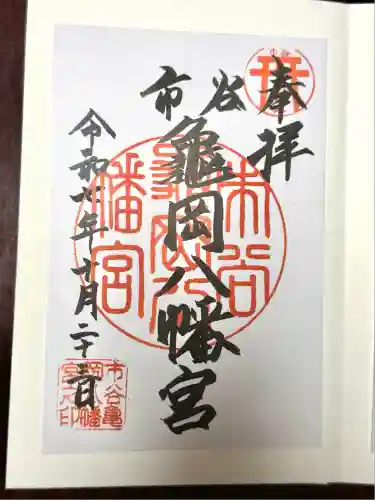 奉拝
市谷
亀岡八幡宮
令和六年十月二十三日
市谷
亀岡八
幡宮
市谷亀
岡八幡
宮之印